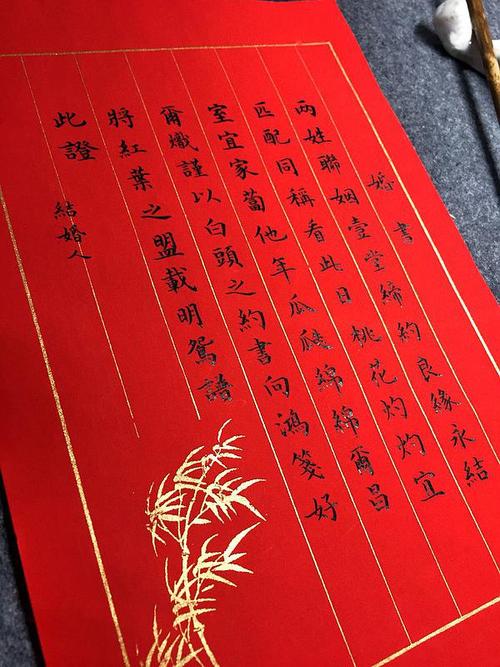 婚書
两姓聯姻壹堂締約良緣永結
匹配同稱看此日桃花灼灼宜
室宜家蔔他年瓜瓞綿綿爾昌
爾熾謹以白頭之約書向鴻箋好
將紅葉之盟載明鴛譜
此證
結婚人